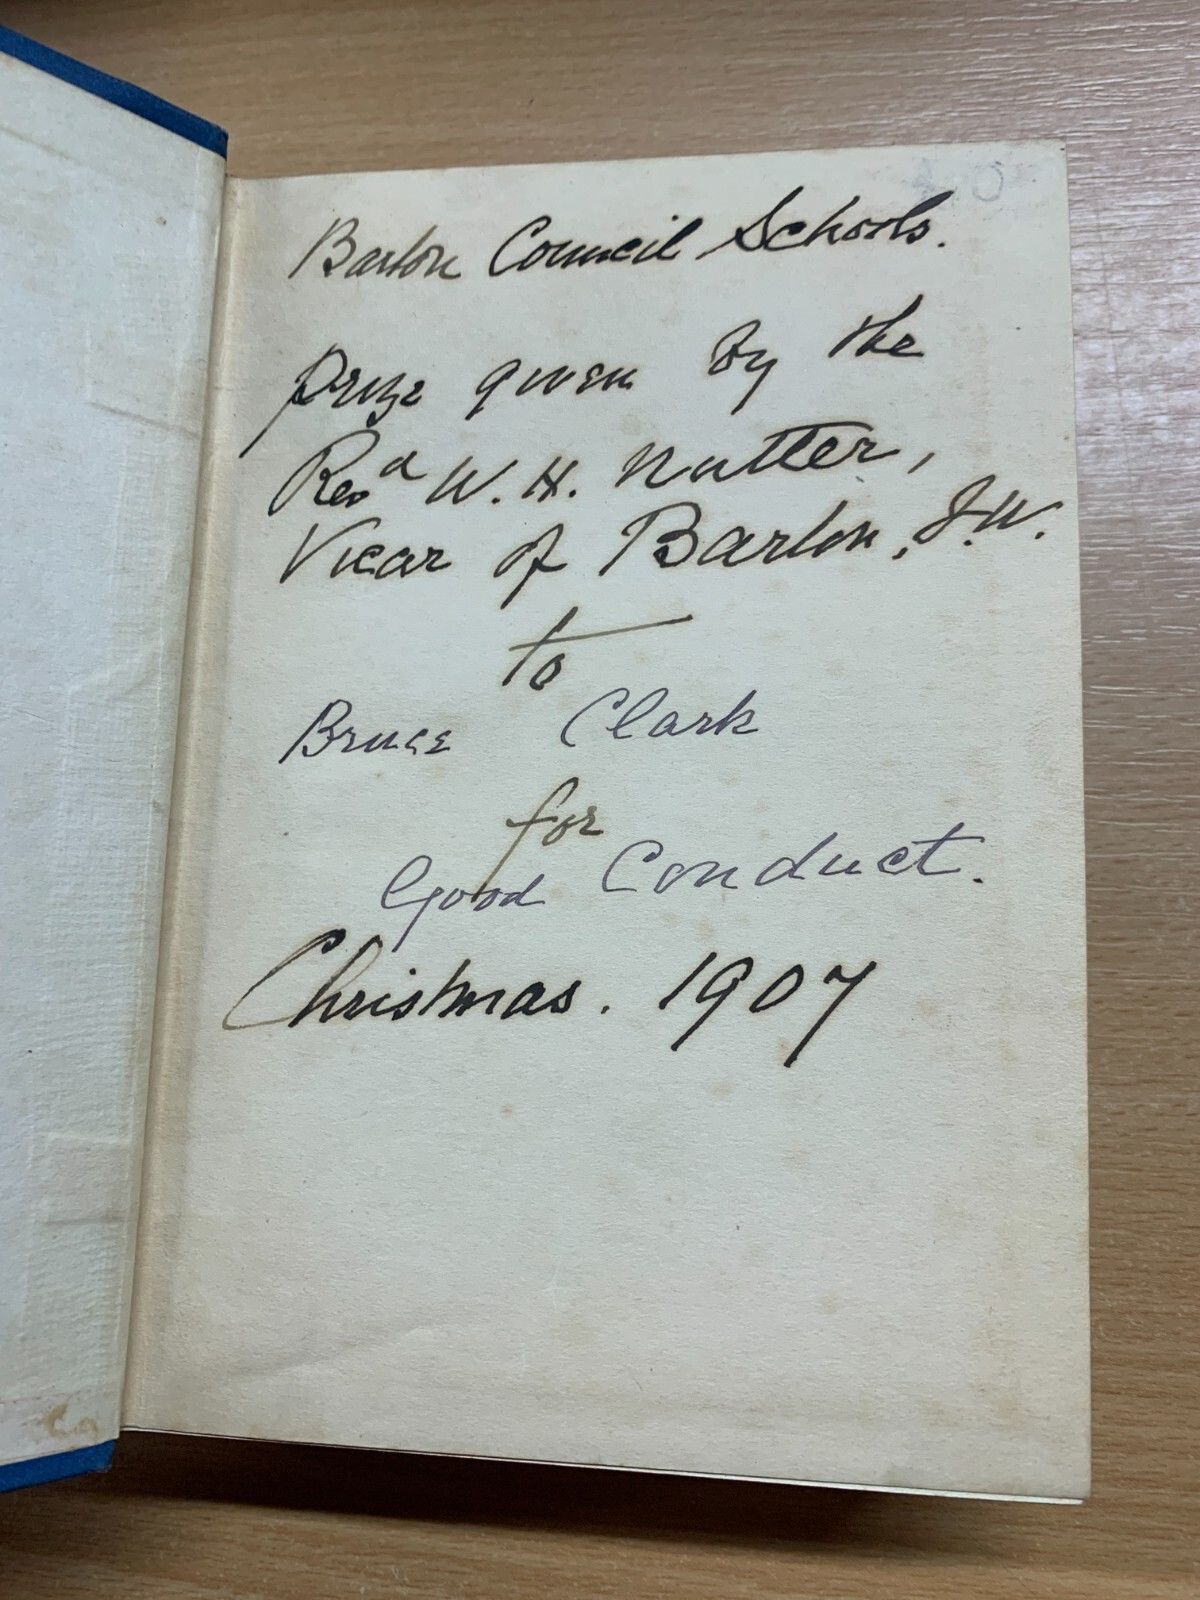 Barton Council Schools.
prize given by the
Revd W. H. Nutter,
Vicar of Barton, I.W.
to
Bruce Clark
for
Good Conduct.
Christmas. 1907